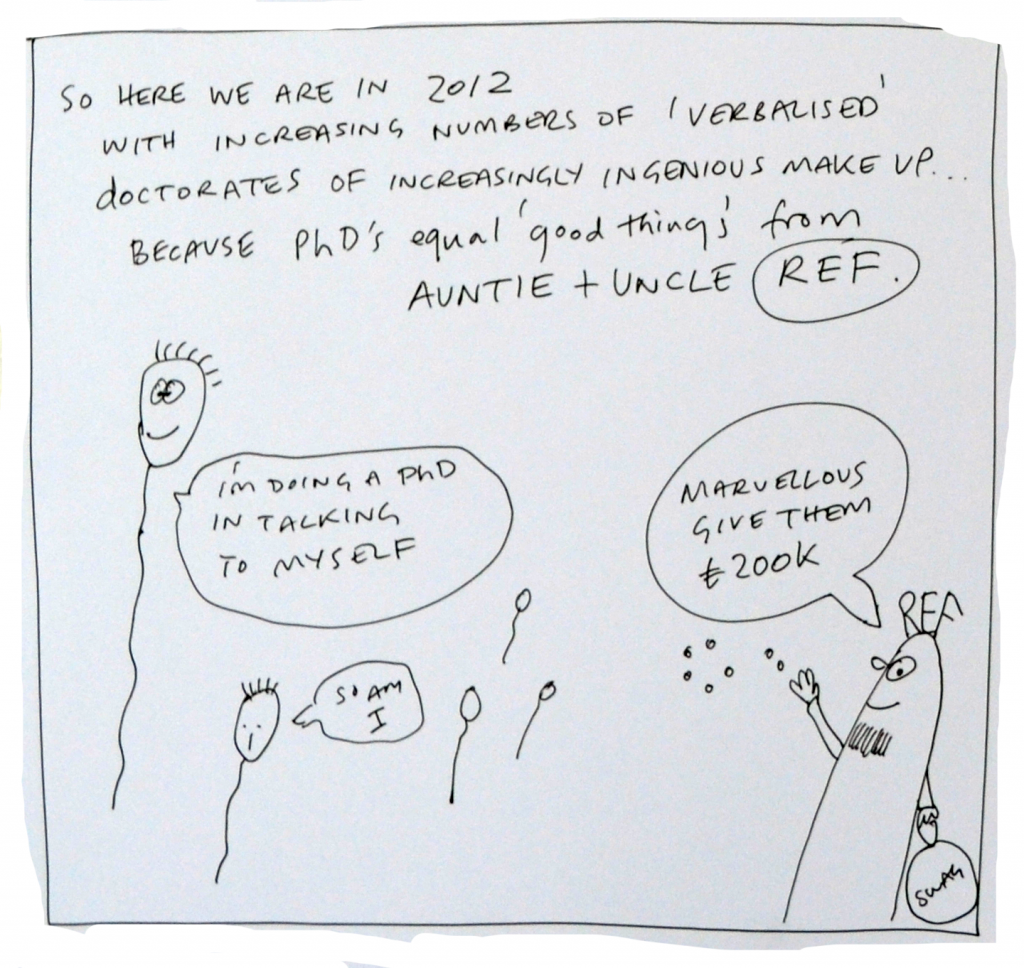 SO HERE WE ARE IN 2012
WITH INCREASING NUMBERS OF 'VERBALISED'
doCTORATES OF INCREASINGLY INGENIOUS MAKE UP...
BECAUSE PhD's equal 'good things' from
AUNTIE + UNCLE REF.
I'm DOING A PhD
IN TALKING
TO MYSELF
SO AM
I
MARVELLOUS
GIVE THEM
£200K
REF
SWAG